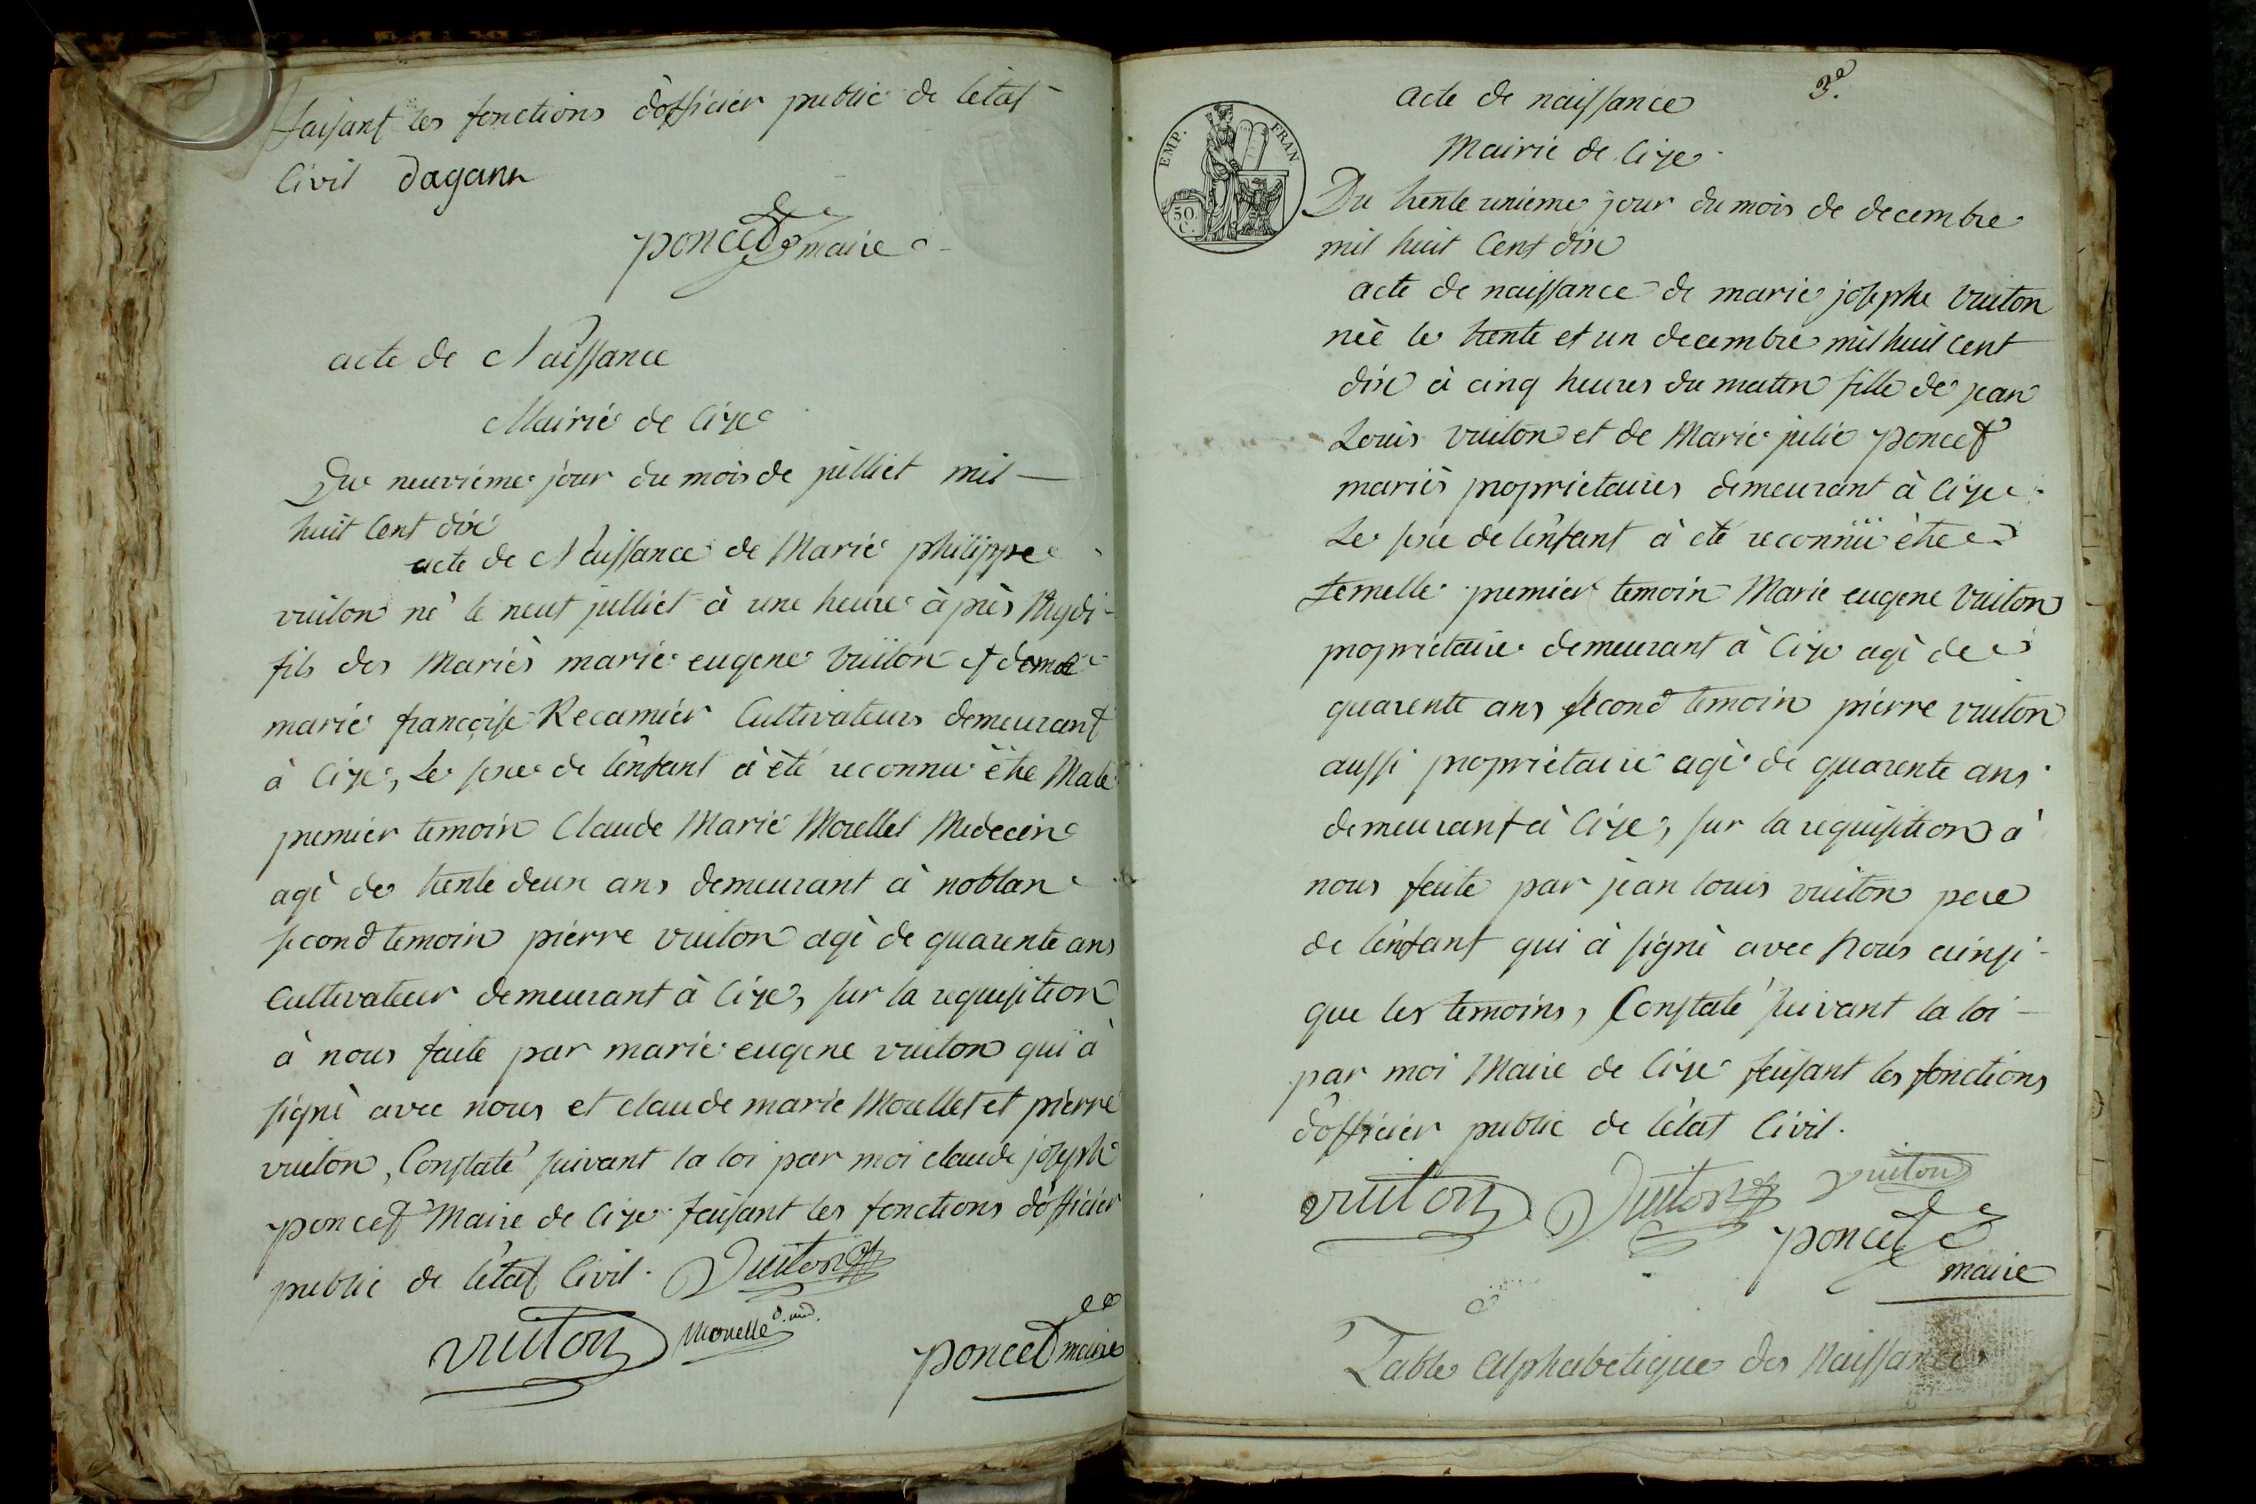 faisant les fonctions d'officier public de l'etat
Civil dagann
poncet maire
acte de Naissance
Mairie de Cize
Du neuvième jour du mois de jüllïet mil
huit Cent dix
acte de Naissance de Marie philippe
vuiton né le neuf julliet à une heure après Mydi
fils des Mariés marie eugene vuiton et de
marie françoise Recamier Cultivateurs demeurant
à Cize, Le sexe de l'enfant à été reconnu être Male
premier temoin Claude Marie Morellet Medecin
agé de trente deux ans demeurant à noblan
second temoin pierre vuiton agé de quarente ans
Cultivateur demeurant à Cize, sur la requisition
à nous faite par marie eugene vuiton qui à
signé avec nous et claude marie Morellet et pierre
vuiton, Constaté suivant la loi par moi claude joseph
poncet Maire de Cize faisant les fonctions d'officier
public de l'état Civil. Vuiton
vuiton Morellet d. md. poncet maire
3e
acte de naissance
Mairie de Cize
EMP. FRAN
50 C.
Du trente unieme jour du mois de decembre
mil huit Cent dix
acte de naissance de marie josephe vuiton
née le trente et un decembre mil huit cent
dix à cinq heures du matin fille de jean
Louis vuiton et de Marie julie poncet
mariés proprietaires demeurant à Cize
Le sexe de l'enfant à été reconnüe être
femelle premier temoin Marie eugene vuiton
proprietaire demeurant à Cize agé de
quarente ans second temoin pierre vuiton
aussi proprietaire agé de quarente ans
demeurant à Cize, sur la requisition à
nous faite par jean louis vuiton pere
de l'enfant qui à signé avec Nous ainsi
que les temoins, Constaté suivant la loi
par moi Maire de Cize faisant les fonctions
d'officier public de l'état Civil.
vuiton Vuiton vuiton
poncet
maire
Table Alphabetique des Naissances